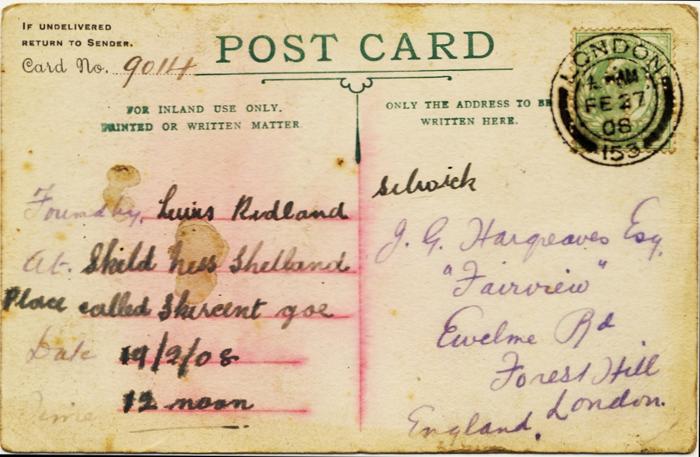 IF UNDELIVERED
RETURN TO SENDER.
Card No. 9014
POST CARD
FOR INLAND USE ONLY.
PRINTED OR WRITTEN MATTER
ONLY THE ADDRESS TO BE
WRITTEN HERE.
LONDON
AM
FE 27
08
153
Found by, Luins Ridland
At. Skeld Ness Shetland
Place called Skercent goe
Date 19/2/08
Time 12 noon
J. G. Hargreaves Esq,
"Fairview"
Ewelme Rd
Forest Hill
London.
England.